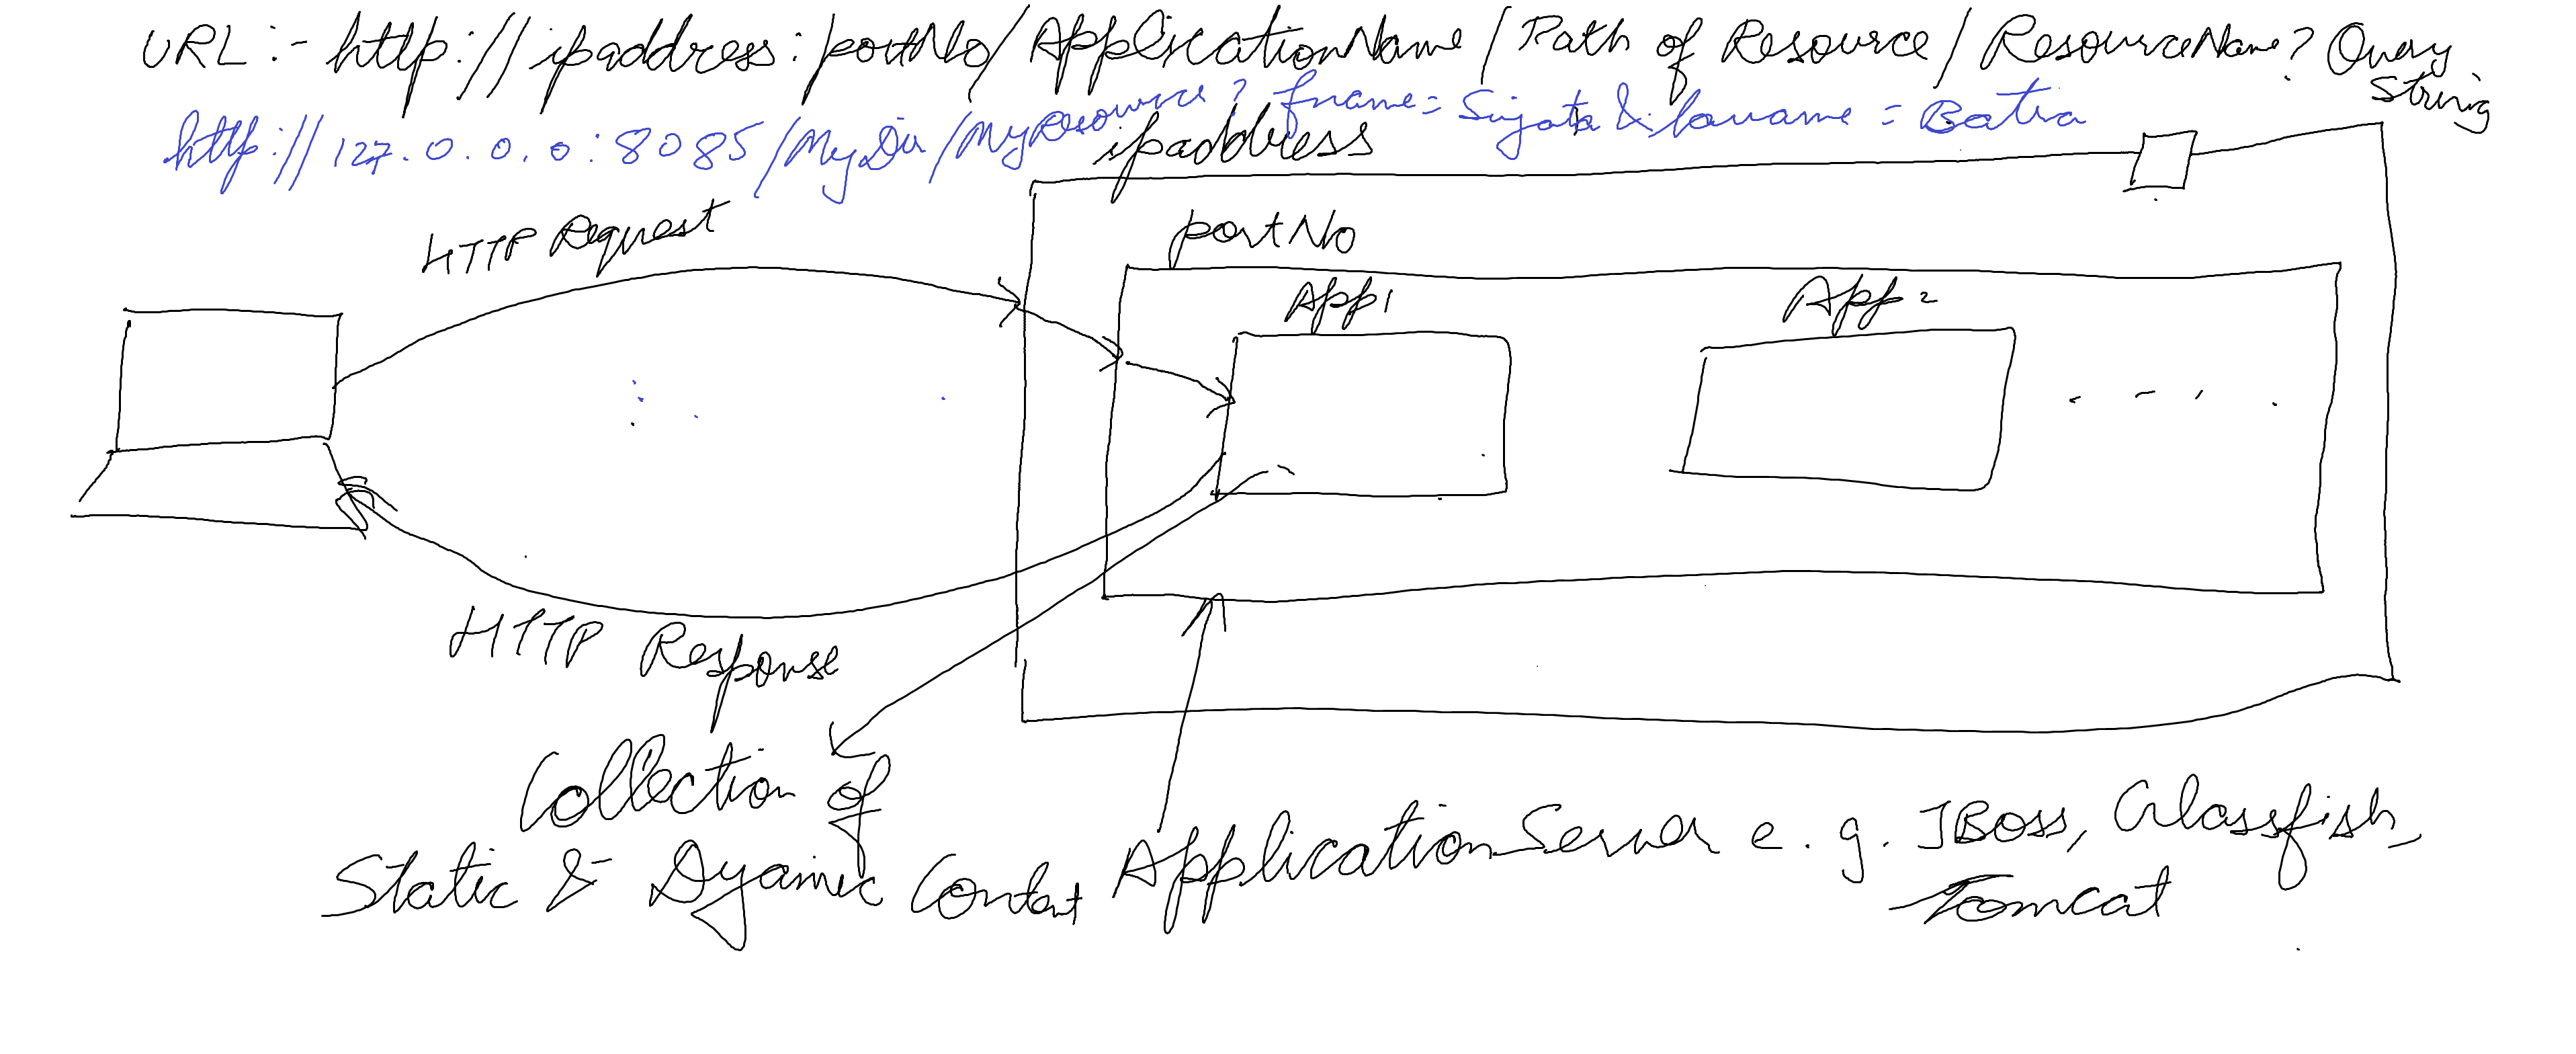 URL :- http://ipaddress:portNo/ApplicationName/Path of Resource/ResourceName? Query
String
http://127.0.0.0:8085/MyDir/MyResource? fname=Sujata & lname = Batra
ipaddress
HTTP Request
portNo
App1
App2
HTTP Response
Collection of
Static & Dyamic Content
Application Server e.g. JBoss, Glassfish,
Tomcat